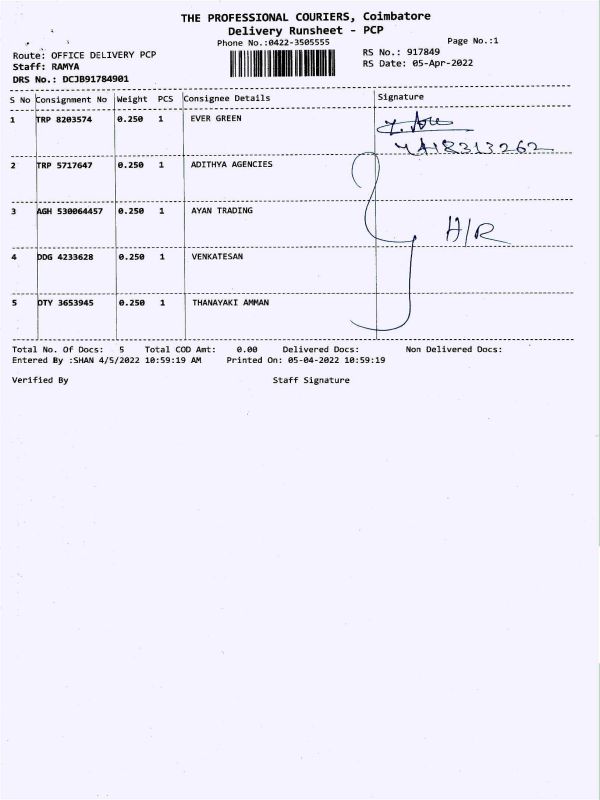 THE PROFESSIONAL COURIERS, Coimbatore
Delivery Runsheet - PCP
Phone No.:0422-3505555
Page No.:1
Route: OFFICE DELIVERY PCP
RS No.: 917849
Staff: RAMYA
RS Date: 05-Apr-2022
DRS No.: DCJB91784901
S No Consignment No Weight PCS Consignee Details Signature
1 TRP 8203574 0.250 1 EVER GREEN
2 TRP 5717647 0.250 1 ADITHYA AGENCIES
3 AGH 530064457 0.250 1 AYAN TRADING
H/R
4 DDG 4233628 0.250 1 VENKATESAN
5 DTY 3653945 0.250 1 THANAYAKI AMMAN
Total No. Of Docs: 5 Total COD Amt: 0.00 Delivered Docs: Non Delivered Docs:
Entered By :SHAN 4/5/2022 10:59:19 AM Printed On: 05-04-2022 10:59:19
Verified By Staff Signature